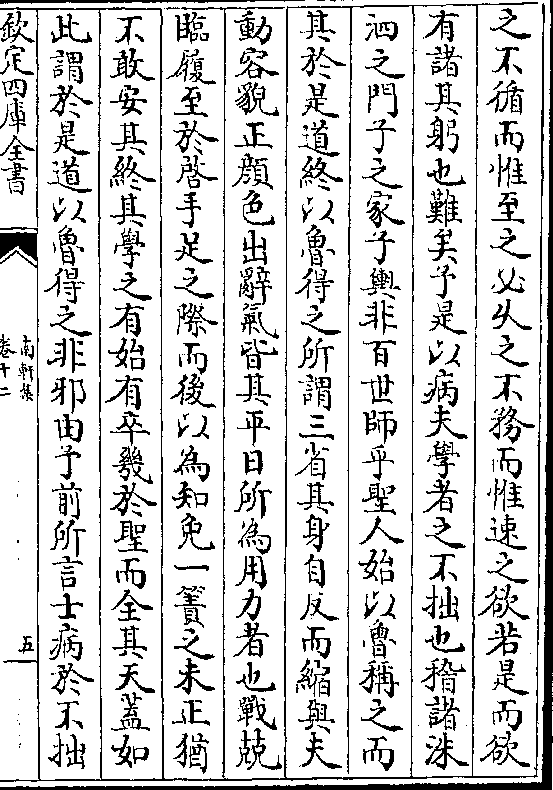 之不循而惟至之必人之不務而惟速之欲若是而欲
有諸其躬也難矣予是以病夫學者之不拙也稽諸洙
泗之門子之家子輿非百世師乎聖人始以魯稱之而
其於是道終以魯得之所謂三省其身自反而縮與夫
動容貌正顔色出辭氣皆其平日所為用力者也戰兢
臨履至於啓手足之際而後以為知免一簀之未正猶
不敢安其終其學之有始有卒幾於聖而全其天蓋如
此謂於是道以魯得之非邪由予前所言士病於不拙
欽定四庫全書
南軒集
卷十二
五